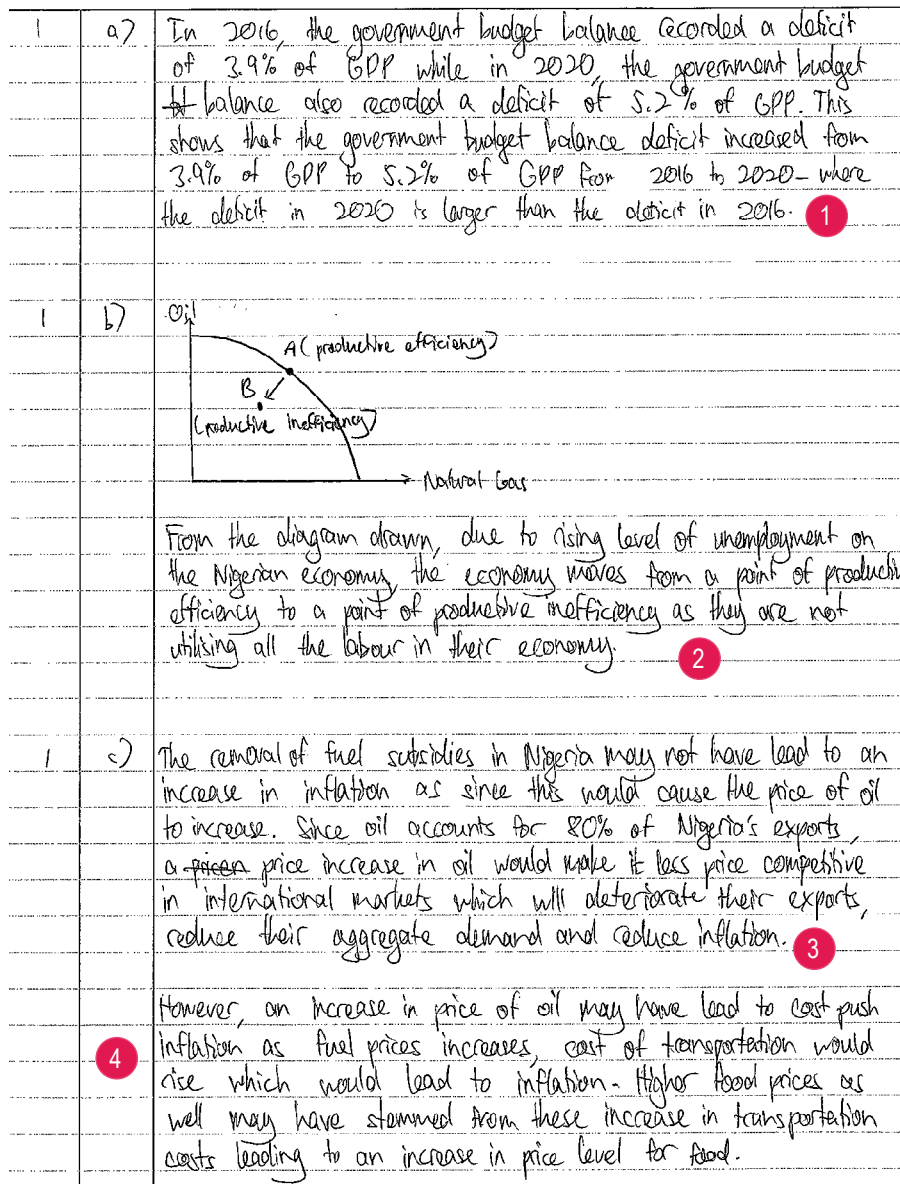 1 a) In 2016, the government budget balance recorded a deficit
of 3.9% of GDP while in 2020, the government budget
balance also recorded a deficit of 5.2% of GDP. This
shows that the government budget balance deficit increased from
3.9% of GDP to 5.2% of GDP from 2016 to 2020 - where
the deficit in 2020 is larger than the deficit in 2016. 1
1 b) Oil
A (productive efficiency)
B
(productive inefficiency)
Natural Gas
From the diagram drawn, due to rising level of unemployment on
the Nigerian economy, the economy moves from a point of productive
efficiency to a point of productive inefficiency as they are not
utilising all the labour in their economy. 2
1 c) The removal of fuel subsidies in Nigeria may not have lead to an
increase in inflation as since this would cause the price of oil
to increase. Since oil accounts for 80% of Nigeria's exports,
a price increase in oil would make it less price competitive
in international markets which will deteriorate their exports,
reduce their aggregate demand and reduce inflation. 3
However, an increase in price of oil may have lead to cost push
4 inflation as fuel prices increases, cost of transportation would
rise which would lead to inflation. Higher food prices as
well may have stemmed from these increase in transportation
costs leading to an increase in price level for food.